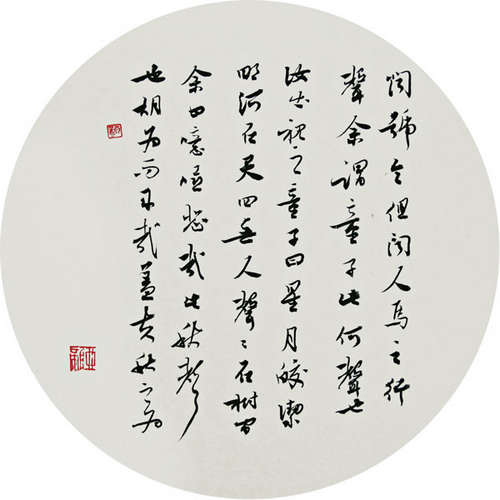 聞號令但聞人馬之行
聲余謂童子此何聲也
汝出視之童子曰星月皎潔
明河在天四無人聲〻在樹間
余曰噫嘻悲哉此秋聲
也胡為而來哉蓋夫秋之為